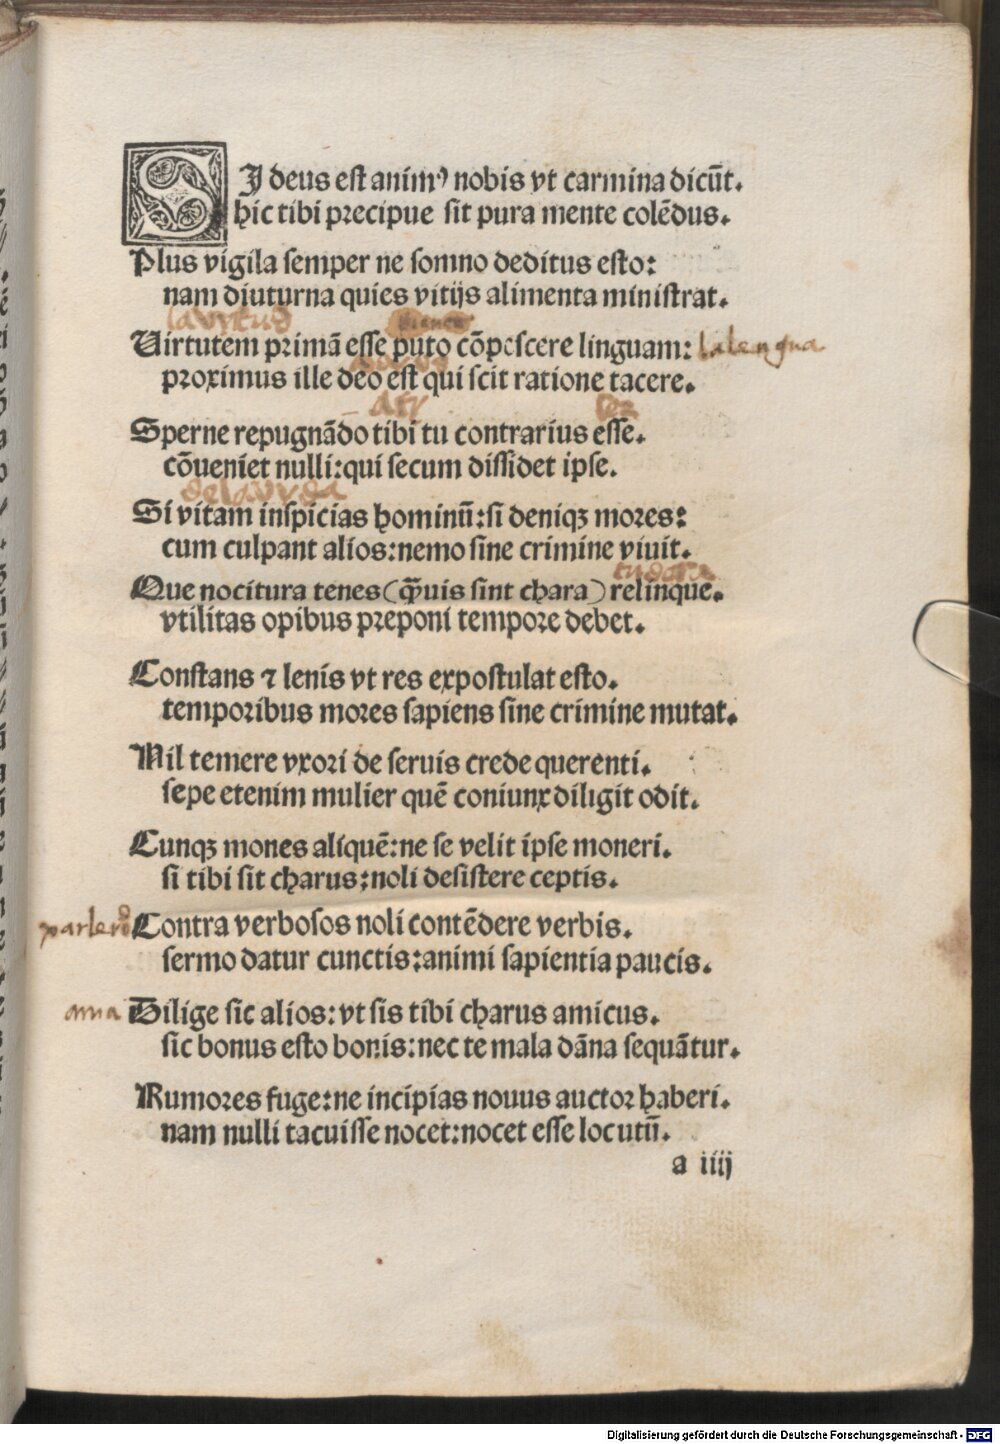 SI deus est animꝰ nobis vt carmina dicūt.
hic tibi precipue sit pura mente colēdus.
Plus vigila semper ne somno deditus esto:
nam diuturna quies vitijs alimenta ministrat.
la vyrtud
Uirtutem primā esse puto cōpescere linguam: la lengua
proximus ille deo est qui scit ratione tacere.
a ty ser
Sperne repugnādo tibi tu contrarius esse.
cōueniet nulli: qui secum dissidet ipse.
de la vyda
Si vitam inspicias hominū: si deniqꝫ mores:
cum culpant alios: nemo sine crimine viuit.
Que nocitura tenes (q̄uis sint chara) relinque.
vtilitas opibus preponi tempore debet.
Constans ⁊ lenis vt res expostulat esto.
temporibus mores sapiens sine crimine mutat.
Nil temere vxori de seruis crede querenti.
sepe etenim mulier quē coniunx diligit odit.
Cunqꝫ mones aliquē: ne se velit ipse moneri.
si tibi sit charus: noli desistere ceptis.
parlero Contra verbosos noli contēdere verbis.
sermo datur cunctis: animi sapientia paucis.
ama Dilige sic alios: vt sis tibi charus amicus.
sic bonus esto bonis: nec te mala dāna sequātur.
Rumores fuge: ne incipias nouus auctor haberi.
nam nulli tacuisse nocet: nocet esse locutū.
a iiij
Digitalisierung gefördert durch die Deutsche Forschungsgemeinschaft - DFG